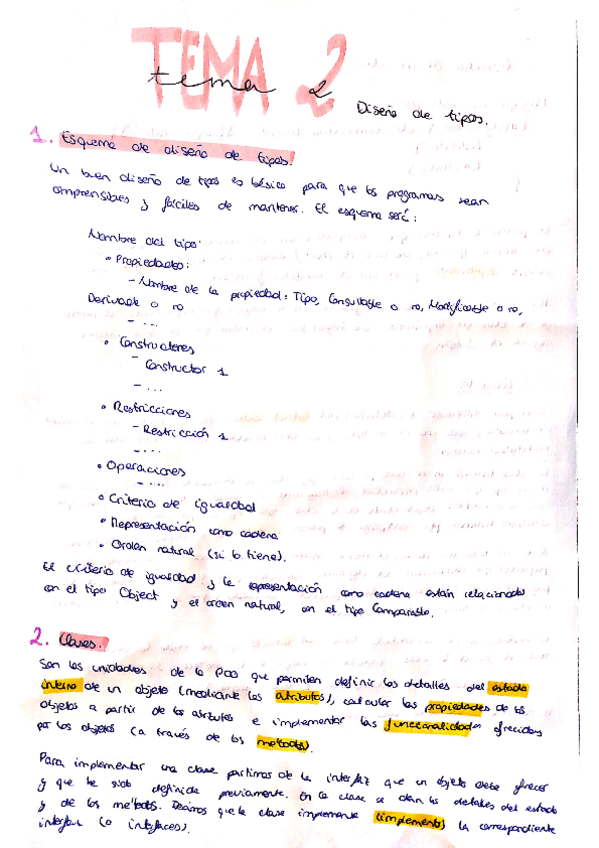 TEMA 2
tema 2
Diseño de tipos.
1. Esquema de diseño de tipos.
Un buen diseño de tipos es básico para que los programas sean
comprensibles y fáciles de mantener. El esquema será:
Nombre del tipo:
• Propiedades:
- Nombre de la propiedad: Tipo, Consultable o no, Modificable o no,
Derivada o no
- ...
• Constructores
- Constructor 1
- ...
• Restricciones
- Restricción 1
- ...
• Operaciones
- ...
• Criterio de igualdad
• Representación como cadena
• Orden natural (si lo tiene).
El criterio de igualdad y la representación como cadena están relacionados
con el tipo Object y el orden natural, con el tipo Comparable.
2. Clases.
Son las unidades de la POO que permiten definir los detalles del estado
interno de un objeto (mediante los atributos), calcular las propiedades de los
objetos a partir de los atributos e implementar las funcionalidades ofrecidas
por los objetos (a través de los métodos).
Para implementar una clase partimos de la interfaz que un objeto debe ofrecer
y que ha sido definida previamente. En la clase se dan los detalles del estado
y de los métodos. Decimos que la clase implementa (implements) la correspondiente
interfaz (o interfaces).